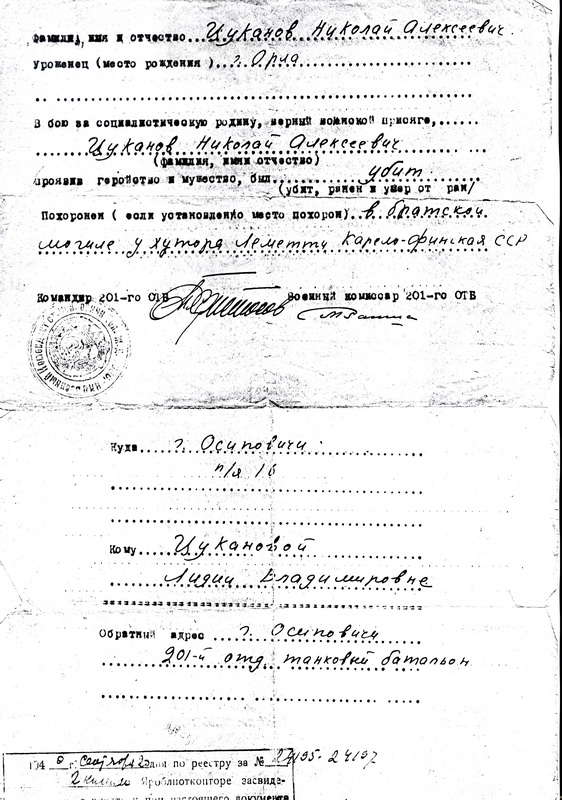 Фамилия, имя и отчество...Цуканов Николай Алексеевич.
Уроженец (место рождения)..г.Орла
В бою за социалистическую родину, верный воинской присяге,......
Цуканов Николай Алексеевич
(фамилия, имя и отчество)
проявив геройство и мужество, был......убит
(убит, ранен и умер от ран/
Похоронен ( если установлено место похорон)..в братской
могиле у хутора Леметти Карело-Финская ССР
Командир 201-го ОТБ Военный комиссар 201-го ОТБ
Куда....г. Осиповичи
п/я 16
Кому....Цукановой
Лидии Владимировне
Обратный адрес ...г. Осиповичи
201-й отд. танковый батальон
194 г. по реестру за № 24195-24197
засвиде-
настоящего документа